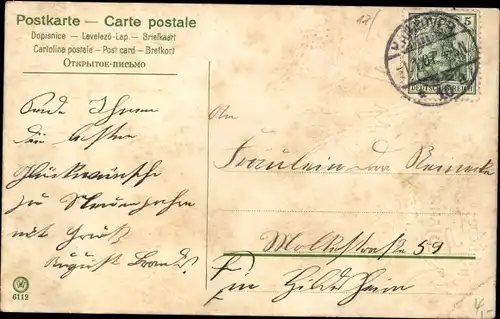 Postkarte — Carte postale
Dopisnice — Levelező-Lap — Briefkaart
Cartolina postale — Post card — Brefkort
Открытое-письмо
5
DEUTSCHES REICH
Sende Ihnen
die besten
Glückwünsche
zu Neuenjahre
mit Gruß
August
An
Fräulein
Moltkestraße 59
in Hildesheim
6112
4,-